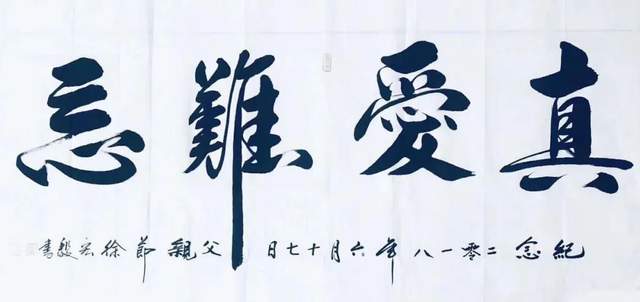 真愛難忘
紀念二零一八年六月十七日父親節徐宏書